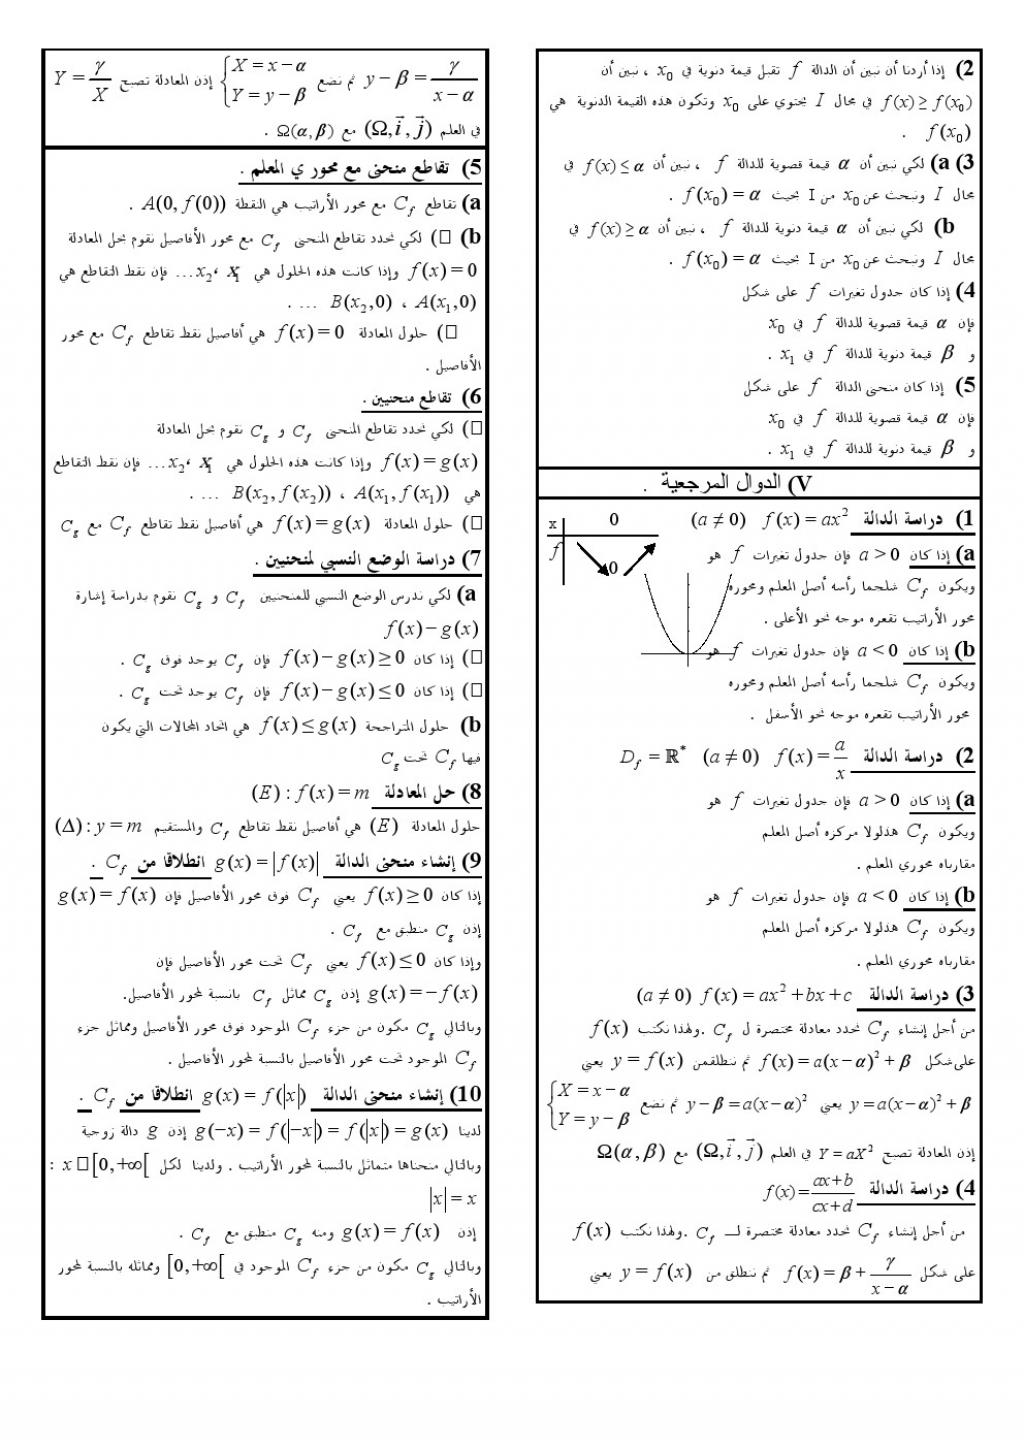 2) إذا أردنا أن نبين أن الدالة f تقبل قيمة دنوية في x₀ ، نبين أن
f(x) ≥ f(x₀) في مجال I يحتوي على x₀ وتكون هذه القيمة الدنوية هي
f(x₀) .
3) a) لكي نبين أن α قيمة قصوية للدالة f ، نبين أن f(x) ≤ α في
مجال I ونبحث عن x₀ من I بحيث f(x₀) = α .
b) لكي نبين أن α قيمة دنوية للدالة f ، نبين أن f(x) ≥ α في
مجال I ونبحث عن x₀ من I بحيث f(x₀) = α .
4) إذا كان جدول تغيرات f على شكل
فإن α قيمة قصوية للدالة f في x₀
و β قيمة دنوية للدالة f في x₁ .
5) إذا كان منحنى الدالة f على شكل
فإن α قيمة قصوية للدالة f في x₀
و β قيمة دنوية للدالة f في x₁ .
V) الدوال المرجعية .
1) دراسة الدالة f(x) = ax² (a ≠ 0)
x 0
f 0
a) إذا كان a > 0 فإن جدول تغيرات f هو
ويكون C_f شلجما رأسه أصل المعلم ومحوره
محور الأراتيب تقعره موحه نحو الأعلى .
b) إذا كان a < 0 فإن جدول تغيرات f هو
ويكون C_f شلجما رأسه أصل المعلم ومحوره
محور الأراتيب تقعره موحه نحو الأسفل .
2) دراسة الدالة f(x) = a/x (a ≠ 0) D_f = ℝ*
a) إذا كان a > 0 فإن جدول تغيرات f هو
ويكون C_f هذلولا مركزه أصل المعلم
مقارباه محوري المعلم .
b) إذا كان a < 0 فإن جدول تغيرات f هو
ويكون C_f هذلولا مركزه أصل المعلم
مقارباه محوري المعلم .
3) دراسة الدالة f(x) = ax² + bx + c (a ≠ 0)
من أجل إنشاء C_f نحدد معادلة مختصرة ل C_f .ولهذا نكتب f(x)
على شكل f(x) = a(x − α)² + β ثم ننطلقمن y = f(x) يعني
y = a(x − α)² + β يعني y − β = a(x − α)² ثم نضع { X = x − α ; Y = y − β
إذن المعادلة تصبح Y = aX² في العلم (Ω, i⃗, j⃗) مع Ω(α, β)
4) دراسة الدالة f(x) = (ax + b)/(cx + d)
من أجل إنشاء C_f نحدد معادلة مختصرة لـ C_f .ولهذا نكتب f(x)
على شكل f(x) = β + γ/(x − α) ثم ننطلق من y = f(x) يعني
y − β = γ/(x − α) ثم نضع { X = x − α ; Y = y − β إذن المعادلة تصبح Y = γ/X
في العلم (Ω, i⃗, j⃗) مع Ω(α, β) .
5) تقاطع منحنى مع محور ي المعلم .
a) تقاطع C_f مع محور الأراتيب هي النقطة A(0, f(0)) .
b) □) لكي نحدد تقاطع المنحنى C_f مع محور الأفاصيل نقوم بحل المعادلة
f(x) = 0 وإذا كانت هذه الحلول هي x₁ ، x₂ ... فإن نقط التقاطع هي
A(x₁,0) ، B(x₂,0) ... .
□) حلول المعادلة f(x) = 0 هي أفاصيل نقط تقاطع C_f مع محور
الأفاصيل .
6) تقاطع منحنيين .
□) لكي نحدد تقاطع المنحنى C_f و C_g نقوم بحل المعادلة
f(x) = g(x) وإذا كانت هذه الحلول هي x₁ ، x₂ ... فإن نقط التقاطع
هي A(x₁, f(x₁)) ، B(x₂, f(x₂)) ... .
□) حلول المعادلة f(x) = g(x) هي أفاصيل نقط تقاطع C_f مع C_g
7) دراسة الوضع النسبي لمنحنيين .
a) لكي ندرس الوضع النسبي للمنحنيين C_f و C_g نقوم بدراسة إشارة
f(x) − g(x)
□) إذا كان f(x) − g(x) ≥ 0 فإن C_f يوجد فوق C_g .
□) إذا كان f(x) − g(x) ≤ 0 فإن C_f يوجد تحت C_g .
b) حلول المتراجحة f(x) ≤ g(x) هي اتحاد المجالات التي يكون
فيها C_f تحت C_g
8) حل المعادلة (E) : f(x) = m
حلول المعادلة (E) هي أفاصيل نقط تقاطع C_f والمستقيم (Δ) : y = m
9) إنشاء منحنى الدالة g(x) = |f(x)| انطلاقا من C_f .
إذا كان f(x) ≥ 0 يعني C_f فوق محور الأفاصيل فإن g(x) = f(x)
إذن C_g منطبق مع C_f .
وإذا كان f(x) ≤ 0 يعني C_f تحت محور الأفاصيل فإن
g(x) = −f(x) إذن C_g مماثل C_f بانسبة لمحور الأفاصيل.
وبالتالي C_g مكون من جزء C_f الموجود فوق محور الأفاصيل ومماثل جزء
C_f الموجود تحت محور الأفاصيل بالنسبة لمحور الأفاصيل .
10) إنشاء منحنى الدالة g(x) = f(|x|) انطلاقا من C_f .
لدينا g(−x) = f(|−x|) = f(|x|) = g(x) إذن g دالة زوجية
وبالتالي منحناها متماثل بالنسبة لمحور الأراتيب . ولدينا لكل x □ [0,+∞[ :
|x| = x
إذن g(x) = f(x) ومنه C_g منطبق مع C_f .
وبالتالي C_g مكون من جزء C_f الموجود في [0,+∞[ ومماثله بالنسبة لمحور
الأراتيب .